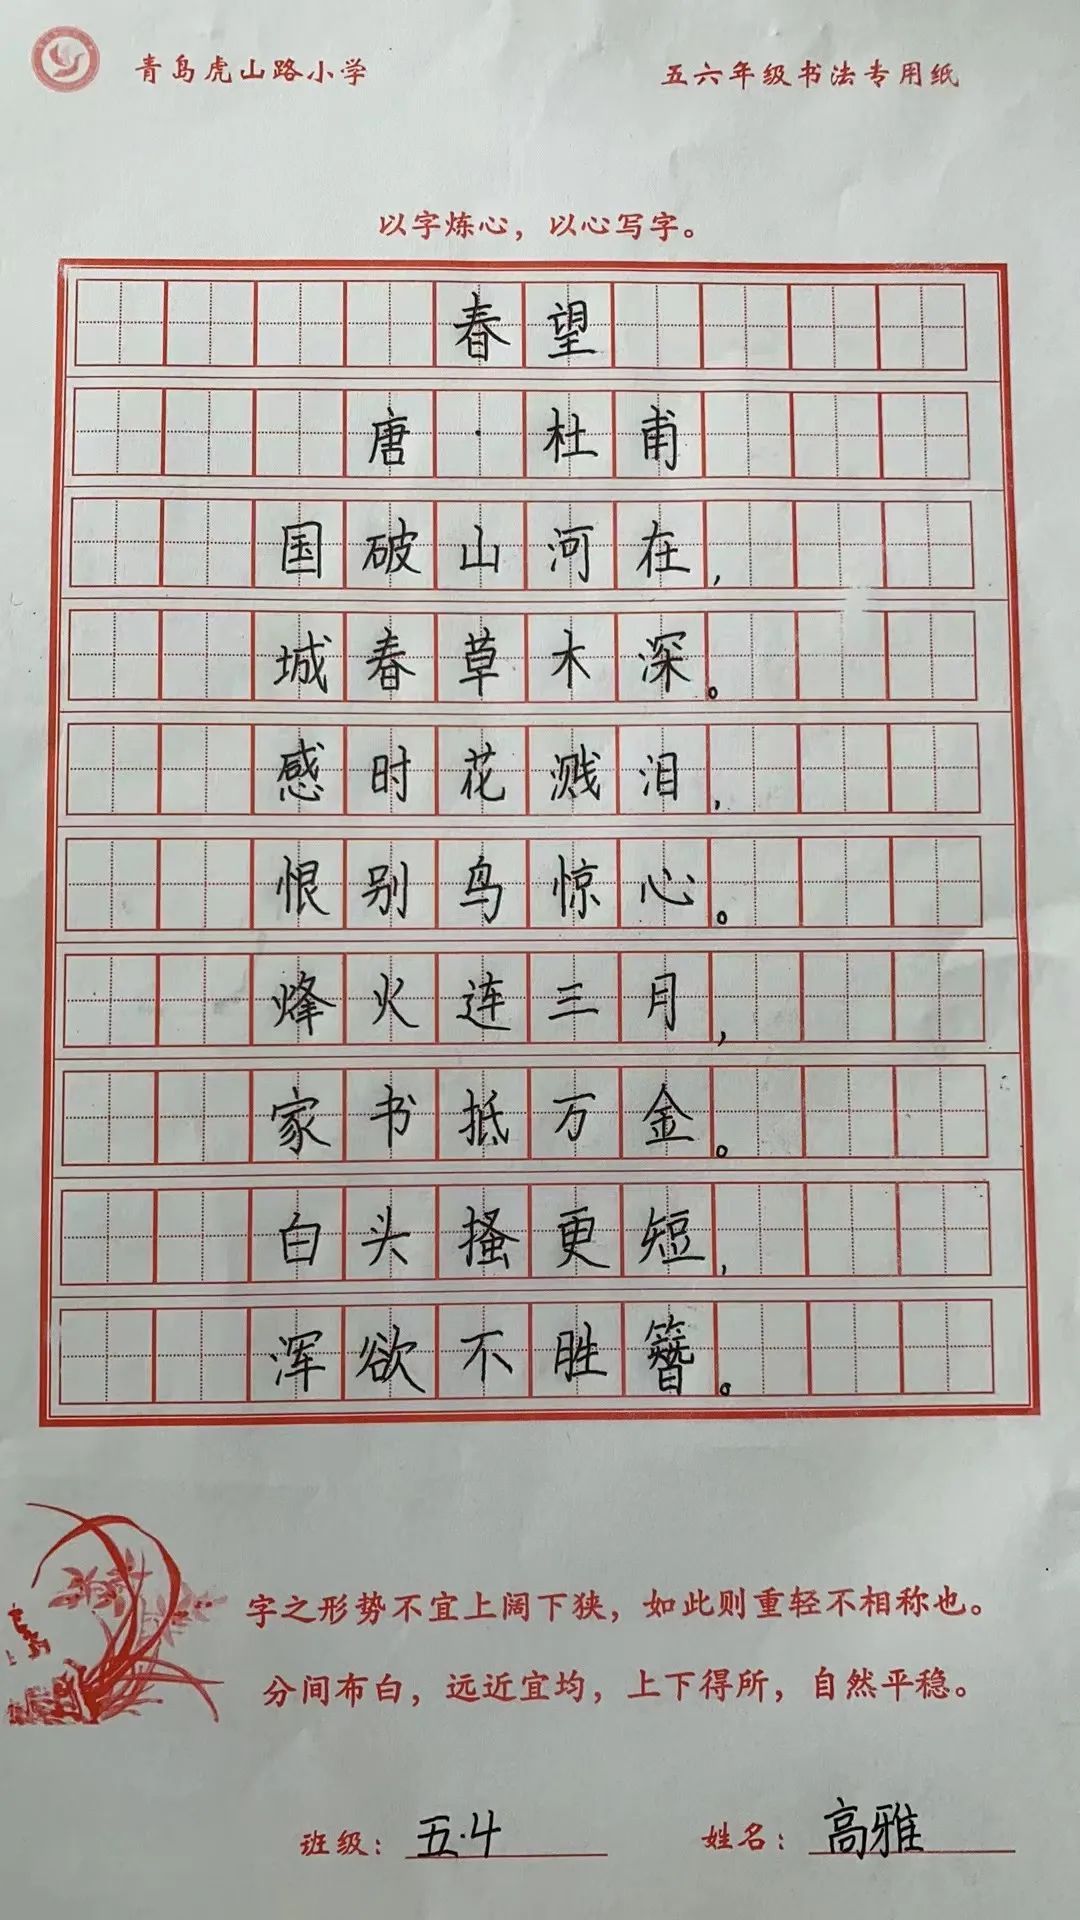 青岛虎山路小学 五六年级书法专用纸
以字炼心，以心写字。
春望
唐·杜甫
国破山河在，
城春草木深。
感时花溅泪，
恨别鸟惊心。
烽火连三月，
家书抵万金。
白头搔更短，
浑欲不胜簪。
字之形势不宜上阔下狭，如此则重轻不相称也。
分间布白，远近宜均，上下得所，自然平稳。
班级：五·4 姓名：高雅